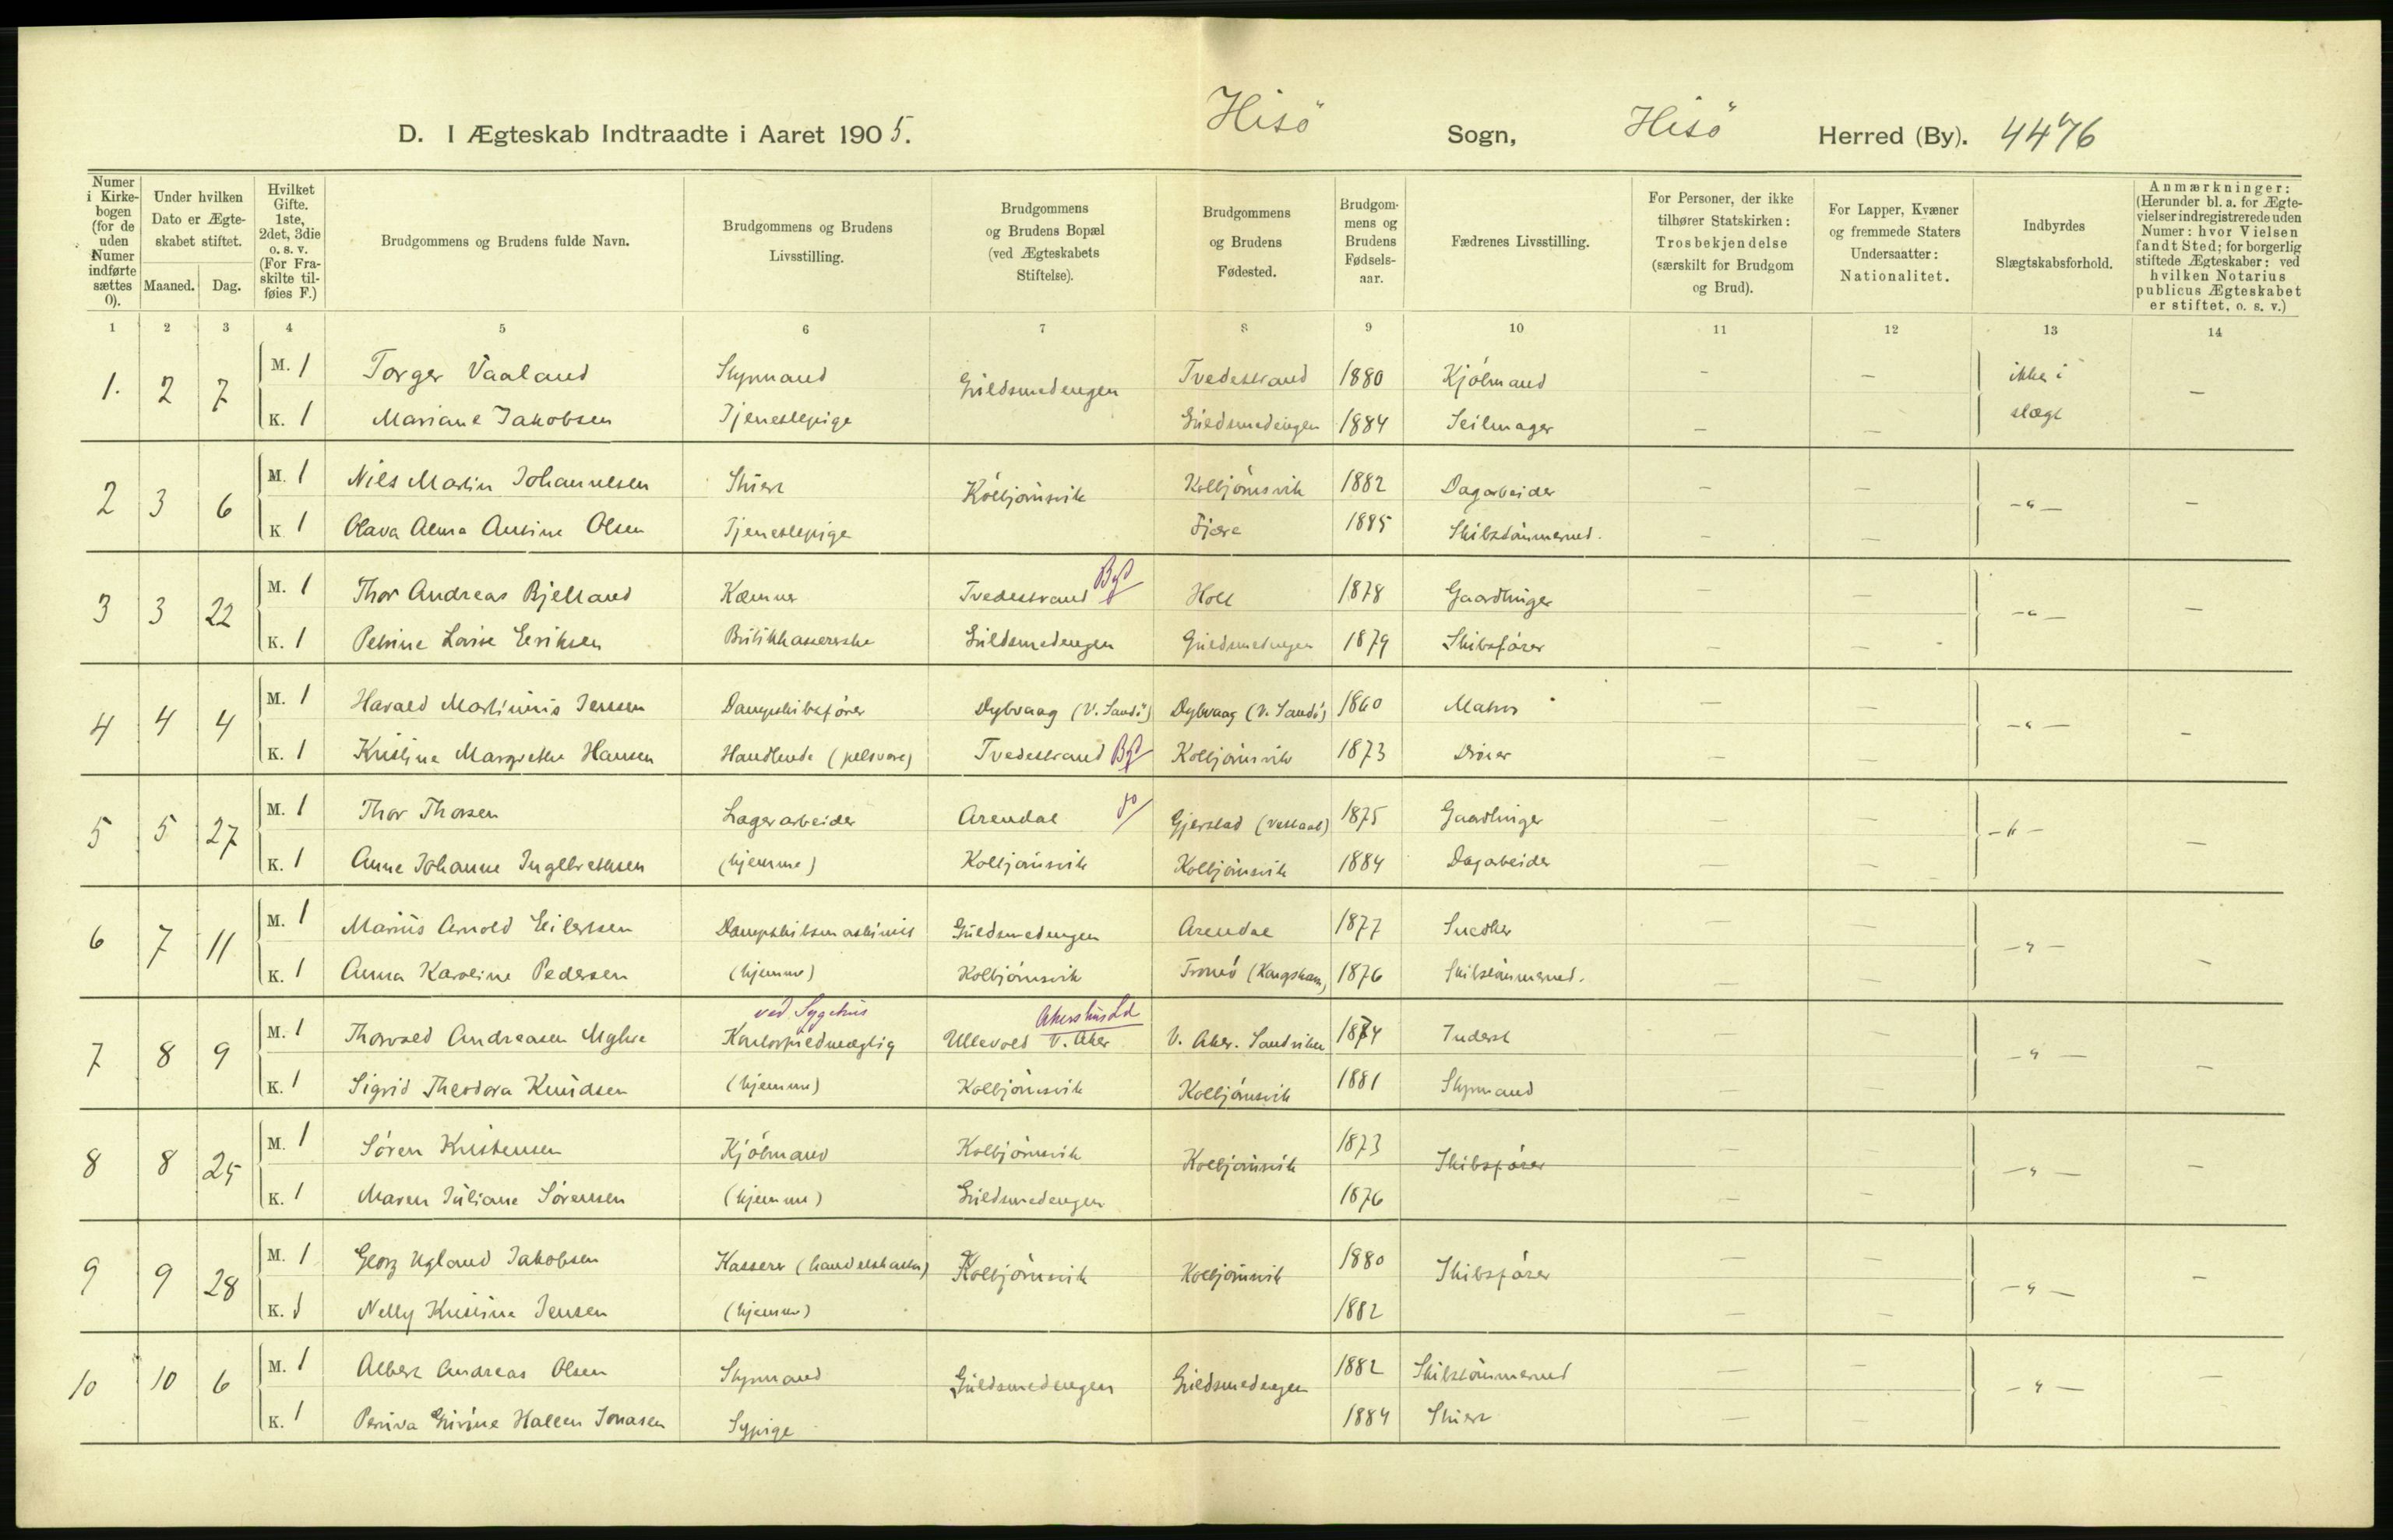 D. I Ægteskab Indtraadte i Aaret 1905. Hisö Sogn, Hisö Herred (By). 4476
Numer i Kirke-bogen (for de uden Numer indførte sættes 0).
Under hvilken Dato er Ægte-skabet stiftet.
Maaned. Dag.
Hvilket Gifte. 1ste, 2det, 3die o. s. v. (For Fra-skilte til-føies F.)
Brudgommens og Brudens fulde Navn.
Brudgommens og Brudens Livsstilling.
Brudgommens og Brudens Bopæl (ved Ægteskabets Stiftelse).
Brudgommens og Brudens Fødested.
Brudgom-mens og Brudens Fødsels-aar.
Fædrenes Livsstilling.
For Personer, der ikke tilhører Statskirken: Trosbekjendelse (særskilt for Brudgom og Brud).
For Lapper, Kvæner og fremmede Staters Undersaatter: Nationalitet.
Indbyrdes Slægtskabsforhold.
Anmærkninger: (Herunder bl. a. for Ægte-vielser indregistrerede uden Numer: hvor Vielsen fandt Sted; for borgerlig stiftede Ægteskaber: ved hvilken Notarius publicus Ægteskabet er stiftet, o. s. v.)
1 2 3 4 5 6 7 8 9 10 11 12 13 14
1. 2 7 M. 1 Torger Vaaland Styrmand Guldsmedengen Tvedestrand 1880 Kjölmand – – ikke i –
K. 1 Mariane Jakobsen Tjenestepige Guldsmedengen 1884 Seilmager – – slægt
2 3 6 M. 1 Nils Martin Johannesen Stuert Kolbjörnsvik Kolbjörnsvik 1882 Dagarbeider – – -"- –
K 1 Olava Alma Antine Olsen Tjenestepige Fjære 1885 Skibstömmermd. – –
3 3 22 M. 1 Thor Andreas Bjelland Kæmner Tvedestrand By Holt 1878 Gaardbruger – – -"- –
K. 1 Petrine Lovise Eriksen Butikkassererske Guldsmedengen Guldsmedengen 1879 Skibsförer – –
4 4 4 M. 1 Harald Martinius Jensen Dampskibsförer Dybvaag (V. Sandö) Dybvaag (V. Sandö) 1860 – – -"- –
K. 1 Kristine Margrethe Hansen Handlende (pelsvare) Tvedestrand By Kolbjörnsvik 1873 – –
5 5 27 M. 1 Thor Thorsen Lagerarbeider Arendal do Gjerstad 1875 Gaardbruger – – -"- –
K. 1 Anne Johanne Ingebrethsen (hjemme) Kolbjörnsvik Kolbjörnsvik 1884 Dagarbeider – –
6 7 11 M. 1 Marius Arnold Eilertsen Dampskibsmaskinist Guldsmedengen Arendal 1877 Snedker – – -"- –
K. 1 Anna Karoline Pedersen (hjemme) Kolbjörnsvik Tromö (Kongshavn) 1876 Skibstömmermd. – –
ved Sygehus Akershus
7 8 9 M. 1 Thorvald Andreasen Kontorfuldmægtig Ullevold V. Aker V. Aker. Sandviken 1874 – – -"- –
K. 1 Sigrid Theodora Knudsen (hjemme) Kolbjörnsvik Kolbjörnsvik 1881 Styrmand – –
8 8 25 M. 1 Sören Kristensen Kjölmand Kolbjörnsvik Kolbjörnsvik 1873 Skibsförer – – -"- –
K. 1 Maren Juliane Sörensen (hjemme) Guldsmedengen 1876 – –
9 9 28 M. 1 Georg Ugland Jakobsen Kasserer Kolbjörnsvik Kolbjörnsvik 1880 Skibsförer – – -"- –
K. 1 Nelly Kristine Jensen (hjemme) 1882 – –
10 10 6 M. 1 Albert Andreas Olsen Styrmand Guldsmedengen Guldsmedengen 1882 Skibstömmermd – – -"- –
K. 1 Hallen Jonasen Sypige 1884 Stuert – –